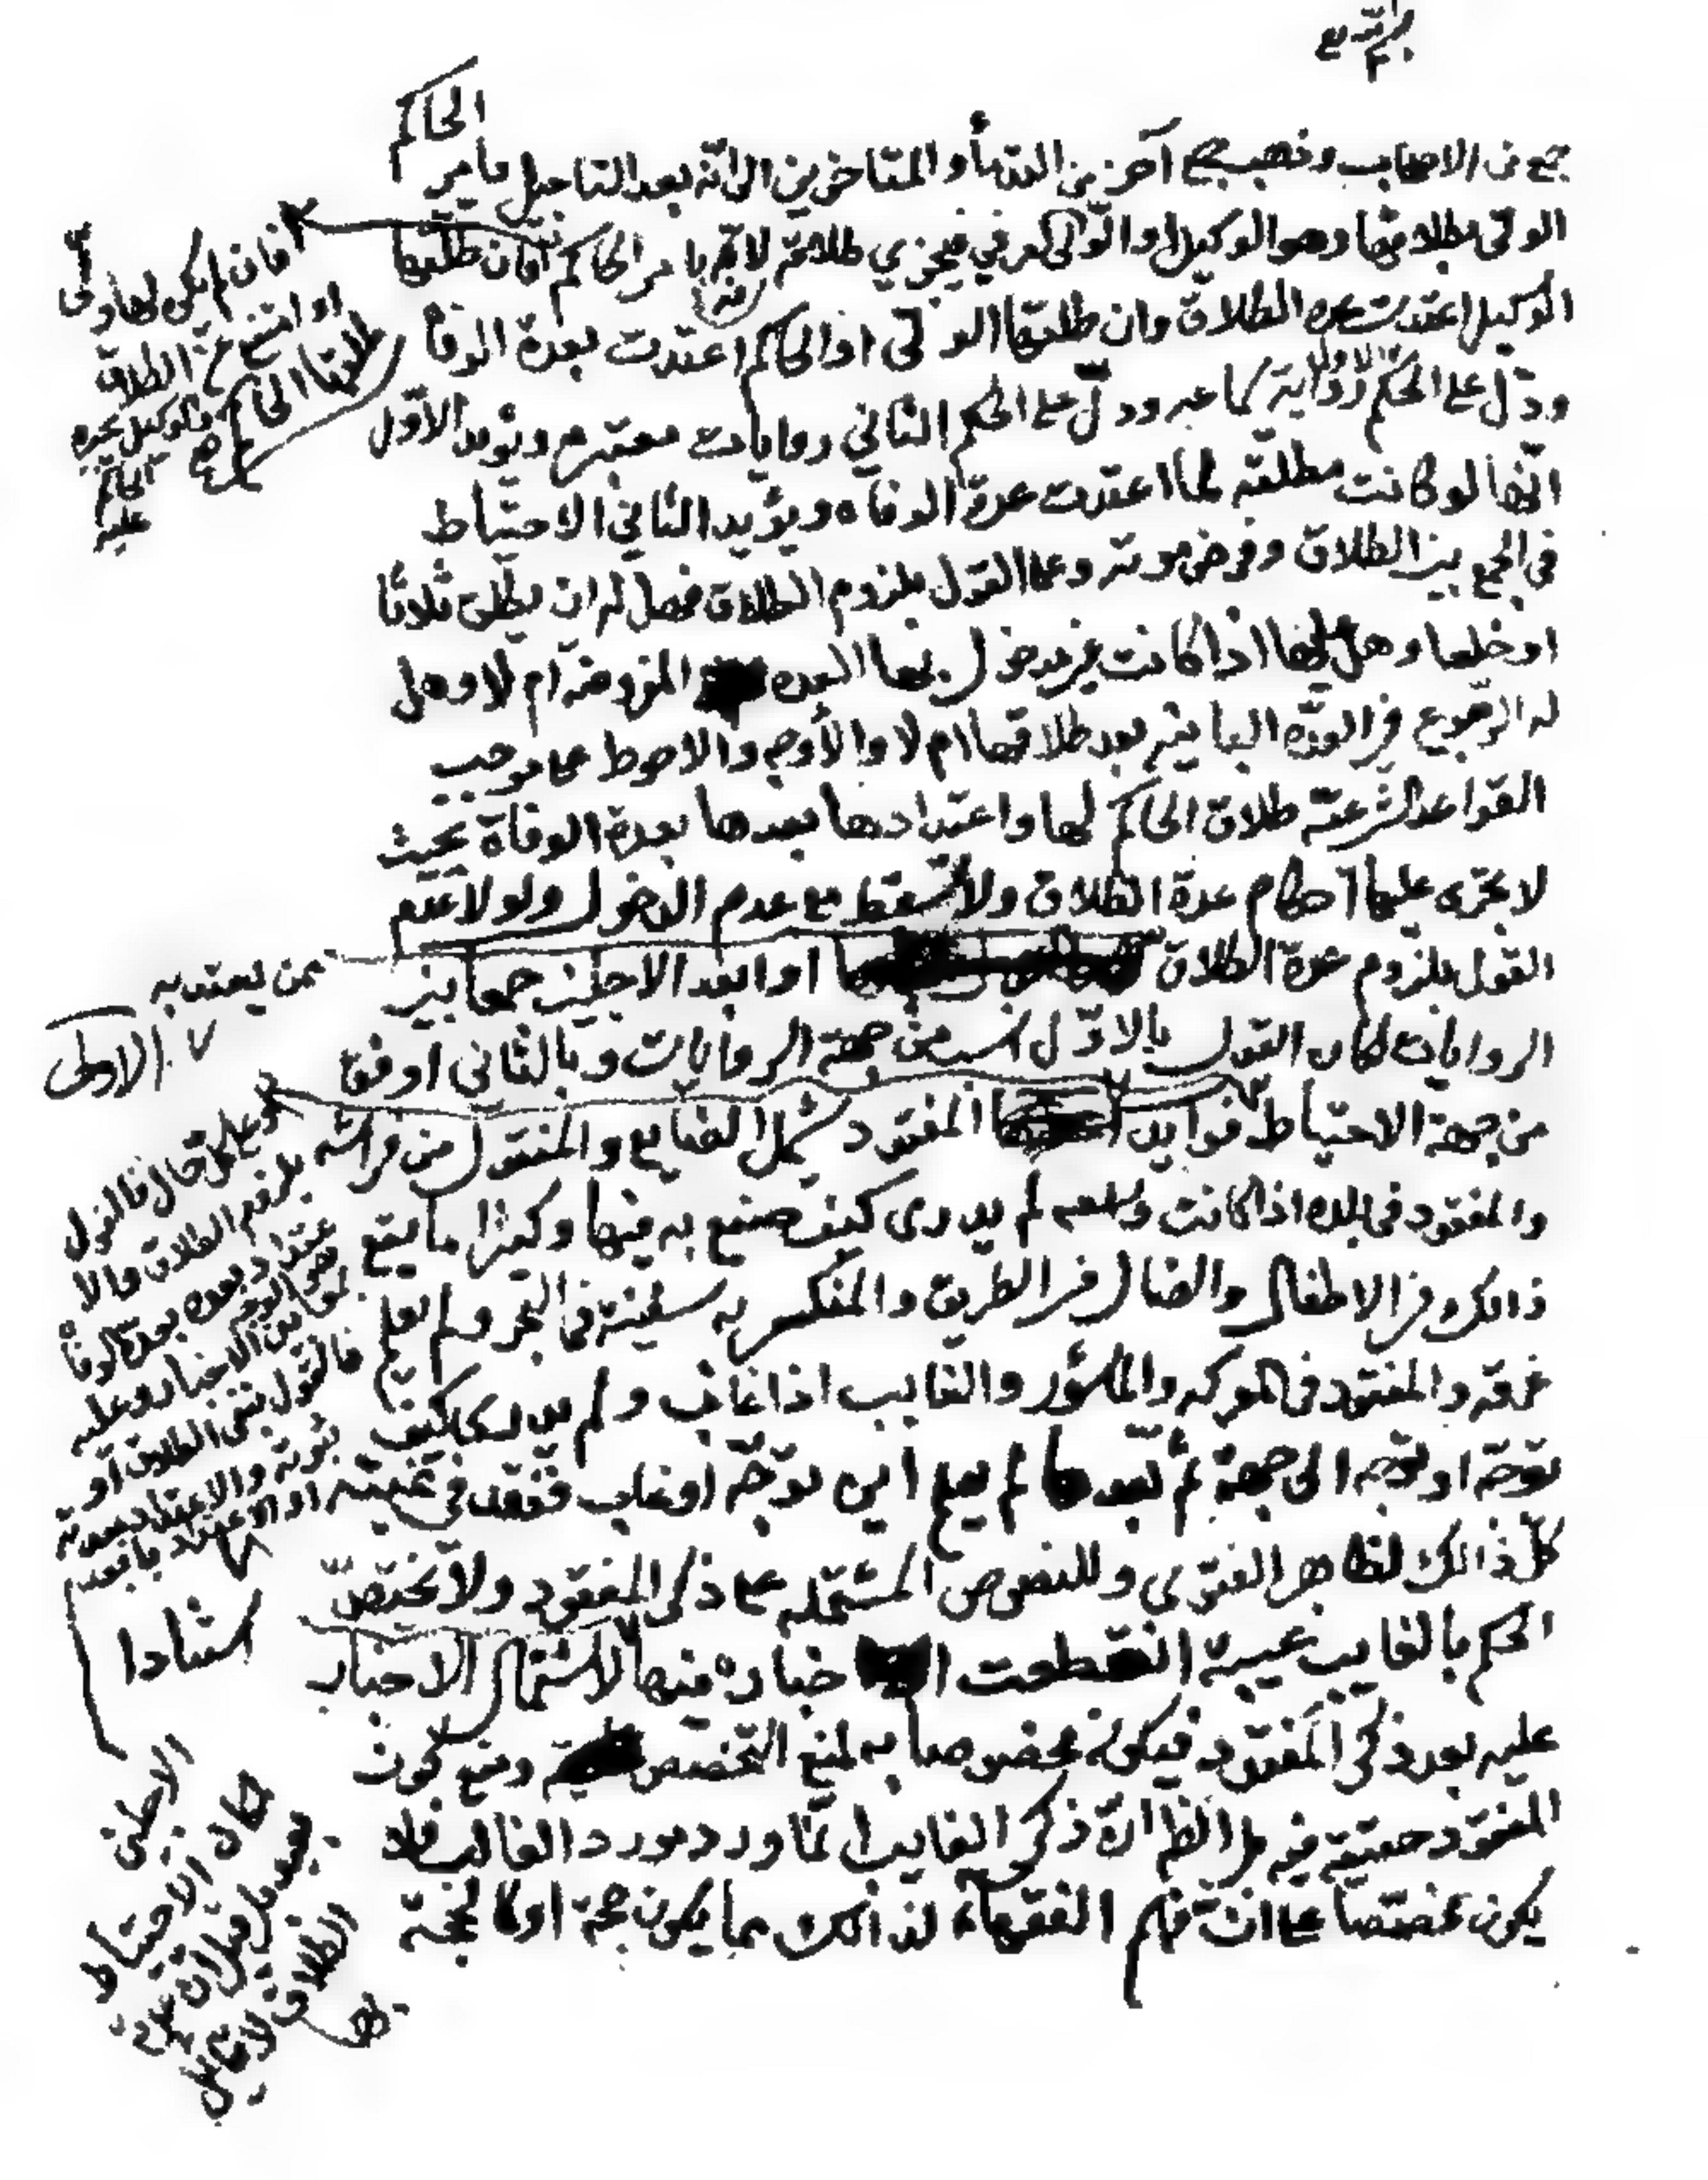 جمع من الاصحاب وذهب جمع آخر من القدمأ والمتاخرين الى انّه بعد التاجيل يامر الحاكم
الولى بطلاقها وهو الوكيل او الولى العرفي فيجزي طلاقه لانه بامر الحاكم فان طلقها
الوكيل اعتدت عدة الطلاق وان طلقها الولى او الحاكم اعتدت بعدة الوفاة
ودلّ على الحكم الاول رواية كما عبر ودلّ على الحكم الثاني روايات معتبرة ويؤيد الاوّل
انّها لو كانت مطلقه لما اعتدت عدة الوفاة ويؤيد الثاني الاحتياط
في الجمع بين الطلاق وفرض موته وعلى القول بلزوم الطلاق فهل له ان يطلق ثلاثا
او خلعا وهل لها اذا كانت غير مدخول بها العدة المفروضة ام لا وهل
له الرجوع في العدّة الباينة بعد طلاقها ام لا والأوجه والاحوط على موجب
القواعد الشرعيّة طلاق الحاكم لها واعتدادها بعدها بعدة الوفاة بحيث
لا يجرى عليها احكام عدة الطلاق ولا تسقط مع عدم الدخول ولولا عدم
القول بلزوم عدة الطلاق او ابعد الاجلين جمعا بين
الروايات لكان القول بالاوّل انسب من جهة الروايات وبالثاني اوفق
من جهة الاحتياط فوايد المفقود يشمل الضايع والمنتقول من فراشه
والمفقود في بلده اذا كانت واسعه لم يدرى كيف صنع به فيها وكثيرا ما يتفع
ذالك في الاطفال والضال في الطريق والمنكسر به سفينة في البحر ولم يعلم
غرقه والمفقود في المعركه والمأسؤر والغايب اذا غاب ولم يدر كيف
توجّه او توجّه الى جهة ثم بعدها لم يعلم اين توجّه او غاب ففقد في غيبته
كلّ ذالك لظاهر الفتوى وللنصوص المشتمله على ذكر المفقود ولا يختصّ
الحكم بالغايب غيبة انقطعت اخباره فيها لاشتمال الاخبار
عليه بعد ذكر المفقود فيكون مخصوصا به لمنع التخصيص ومنع كون
المفقود حقيقة فيه بل الظ انّ ذكر الغايب انّما ورد مورد الغالب فلا
يكون مختصا على انّ فهم الفقهاء لذالك مما يكون حجة او كالحجة
فان لم يكن لها ولى
او امتنع من الطلاق
طلقها الحاكم
الحاكم
عليه
ممن يعتد به
الاولى
وعلى كل حال فالقول
بلزوم الطلاق والا
عتداد بعده بعدة الوفاة
فالقول بنفى الطلاق او
استنادا
كان الاحتياط